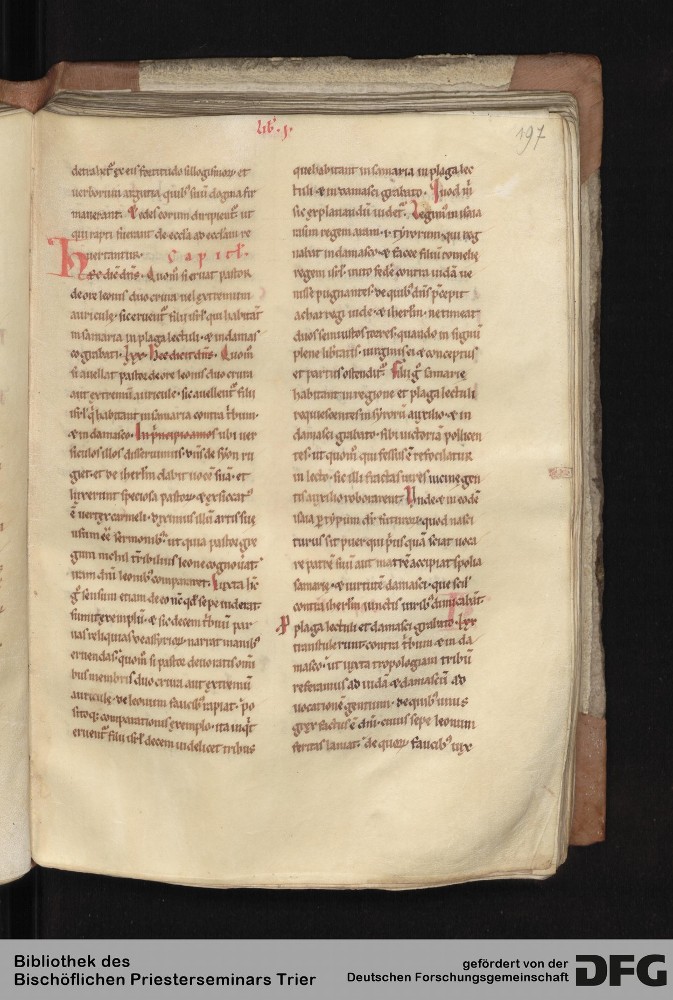 Lib. I.
197
detrahet⁊ ex eis fortitudo sillogismorū et
uerborum argutia quib; suū dogma fir
mauerant. Et edes eorum diripient᷑ ut
qui rapti fuerant de eccl̄a ad ecclam re
uertantur. Capitl.
Hec dic̄ dn̄s. Quom̄ si eruat pastor
de ore leonis duo crura uel extremum
auriculę. sic eruent᷑ filii isrl̄ qui habitant
in samaria in plaga lectuli. & in damas
co grabati. LXX. Hec dicit dn̄s. Quom̄
si auellat pastor de ore leonis duo crura
aut extremū auriculę. sic auellent᷑ filii
isrl̄ q̇ habitant in samaria contra t̄bum.
& in damasco. In p̄ncipio amos ubi uer
siculos illos disseruimus. dn̄s de syon ru
giet. et de ihrl̄m dabit uocē suā. et
luxerunt speciosa pastorū. & exsiccat᷑
ē uertex carmeli. diximus illū artis suę
usum eē sermonib;. ut quia pastor gre
gum nichil tribilius leone cognouat
iram dn̄i leonib; compararet. Iuxta hc̄
g sensum etiam de eo nc̄ qd̄ sepe uiderat
sumit exemplū. & sic decem tribuū par
uas reliquias de assyriorū narrat manib;
eruendas. quom̄ si pastor deuoratis om̄i
bus membris duo crura aut extremū
auriculę. de leonum faucib; rapiat. Po
sitoq; comparationis exemplo. ita inq̇t
eruent᷑ filii isrl̄ decem uidelicet tribus
que habitant in samaria in plaga lec
tuli. & in damasci grabato. Quod m̄
sic explanandū uidet᷑. Legim; in isaia
rasim regem aram. i. syrorum. qui reg
nabat in damasco. & facee filiū romelię
regem isrl̄. inito federe contra iudā ue
nisse pugnantes. de quib; dn̄s p̄cepit
achaz regi iudę. & ihrl̄m. ne timeat
duos semiustos torres. quando in signū
plenę libtatis. uirginis ei & conceptus
et partus ostendit᷑. Filii g samarię
habitant in regione et plaga lectuli
requiescentes in syrorū auxilio. & in
damasci grabato. sibi uictoriā pollicen
tes. ut quom̄ qui fessus ē refocilatur
in lecto. sic illi fractas uires uicinę gen
tis auxilio roborarent. Unde & in eodē
isaia p typum dr̄ futurū. quod nasci
turus sit puer qui p̄us quā sciat uoca
re patrē suū aut matrē accipiat spolia
samarię. & uirtutē damasci. que scil
contra ihrl̄m iunctis uirib; dimicabāt.
P plaga lectuli et damasci grabato. LXX
transtulerunt. contra t̄bum. & in da
masco. ut iuxta tropologiam tribū
referamus ad iudā. & damascū ad
uocationē gentium. de quib; unus
grex factus ē dn̄i. cuius sepe leonum
feritas laniat. de quorū faucib; uix
Bibliothek des
Bischöflichen Priesterseminars Trier
gefördert von der
Deutschen Forschungsgemeinschaft
DFG